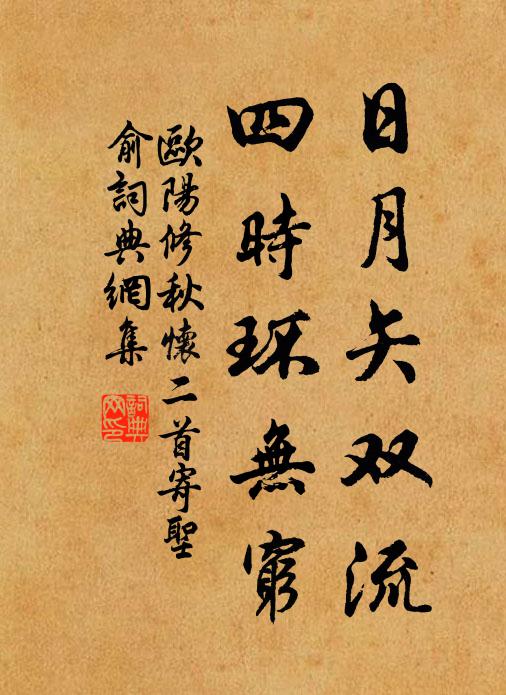 日月矢双流
四時环無窮
歐陽修秋懷二首寄聖
俞詞典網集
詞典网印